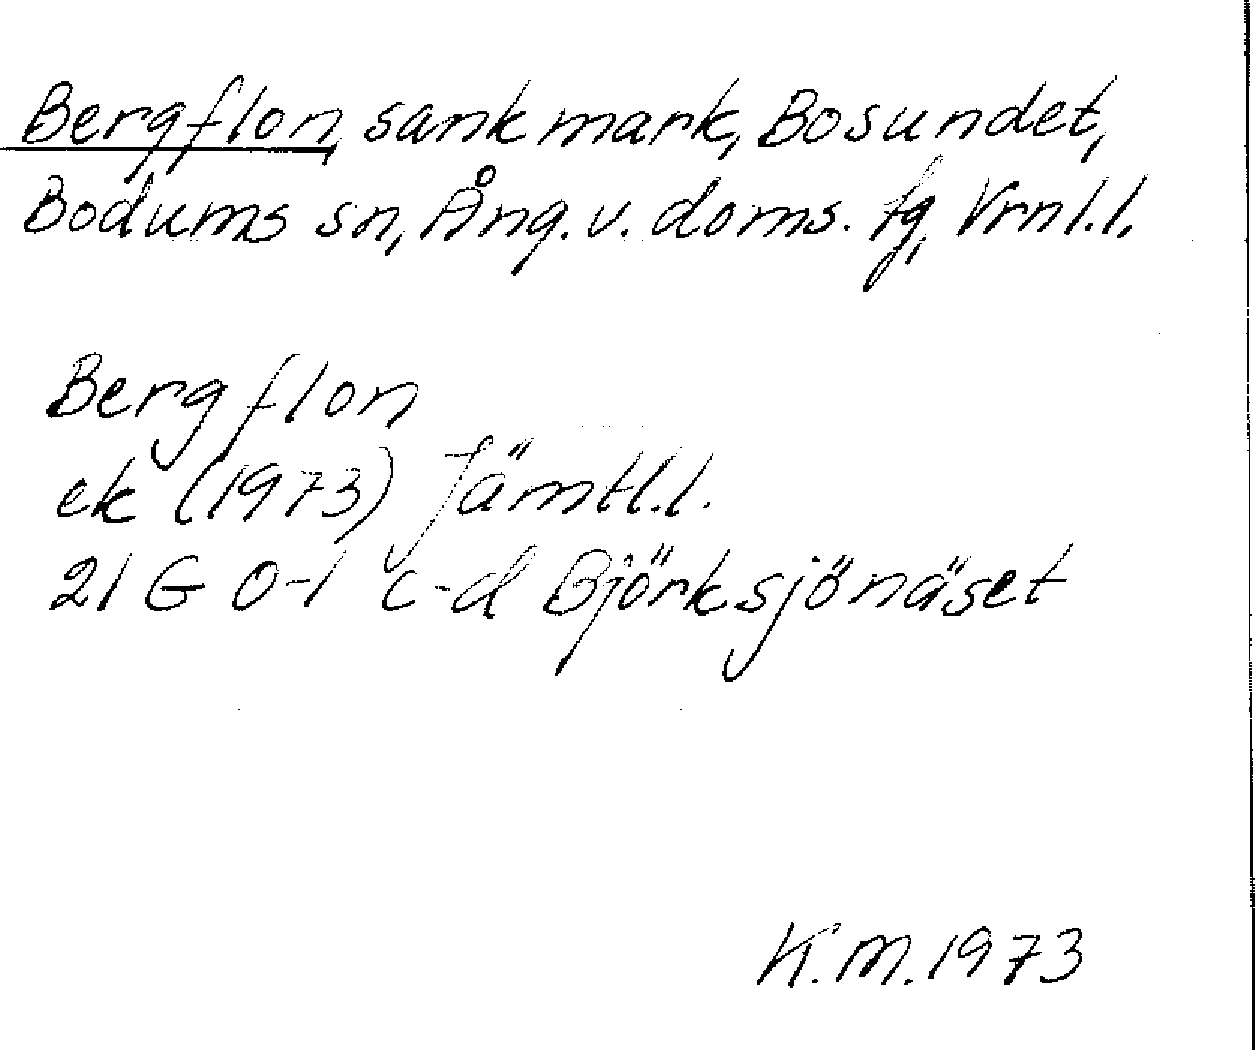 Bergflon, sank mark, Bosundet,
Bodums sn, Ång. v. doms. fg, Vrnl.l.
Bergflon
ek (1973) Jämtl.l.
21 G 0-1 c-d Björksjönäset
K.M. 1973